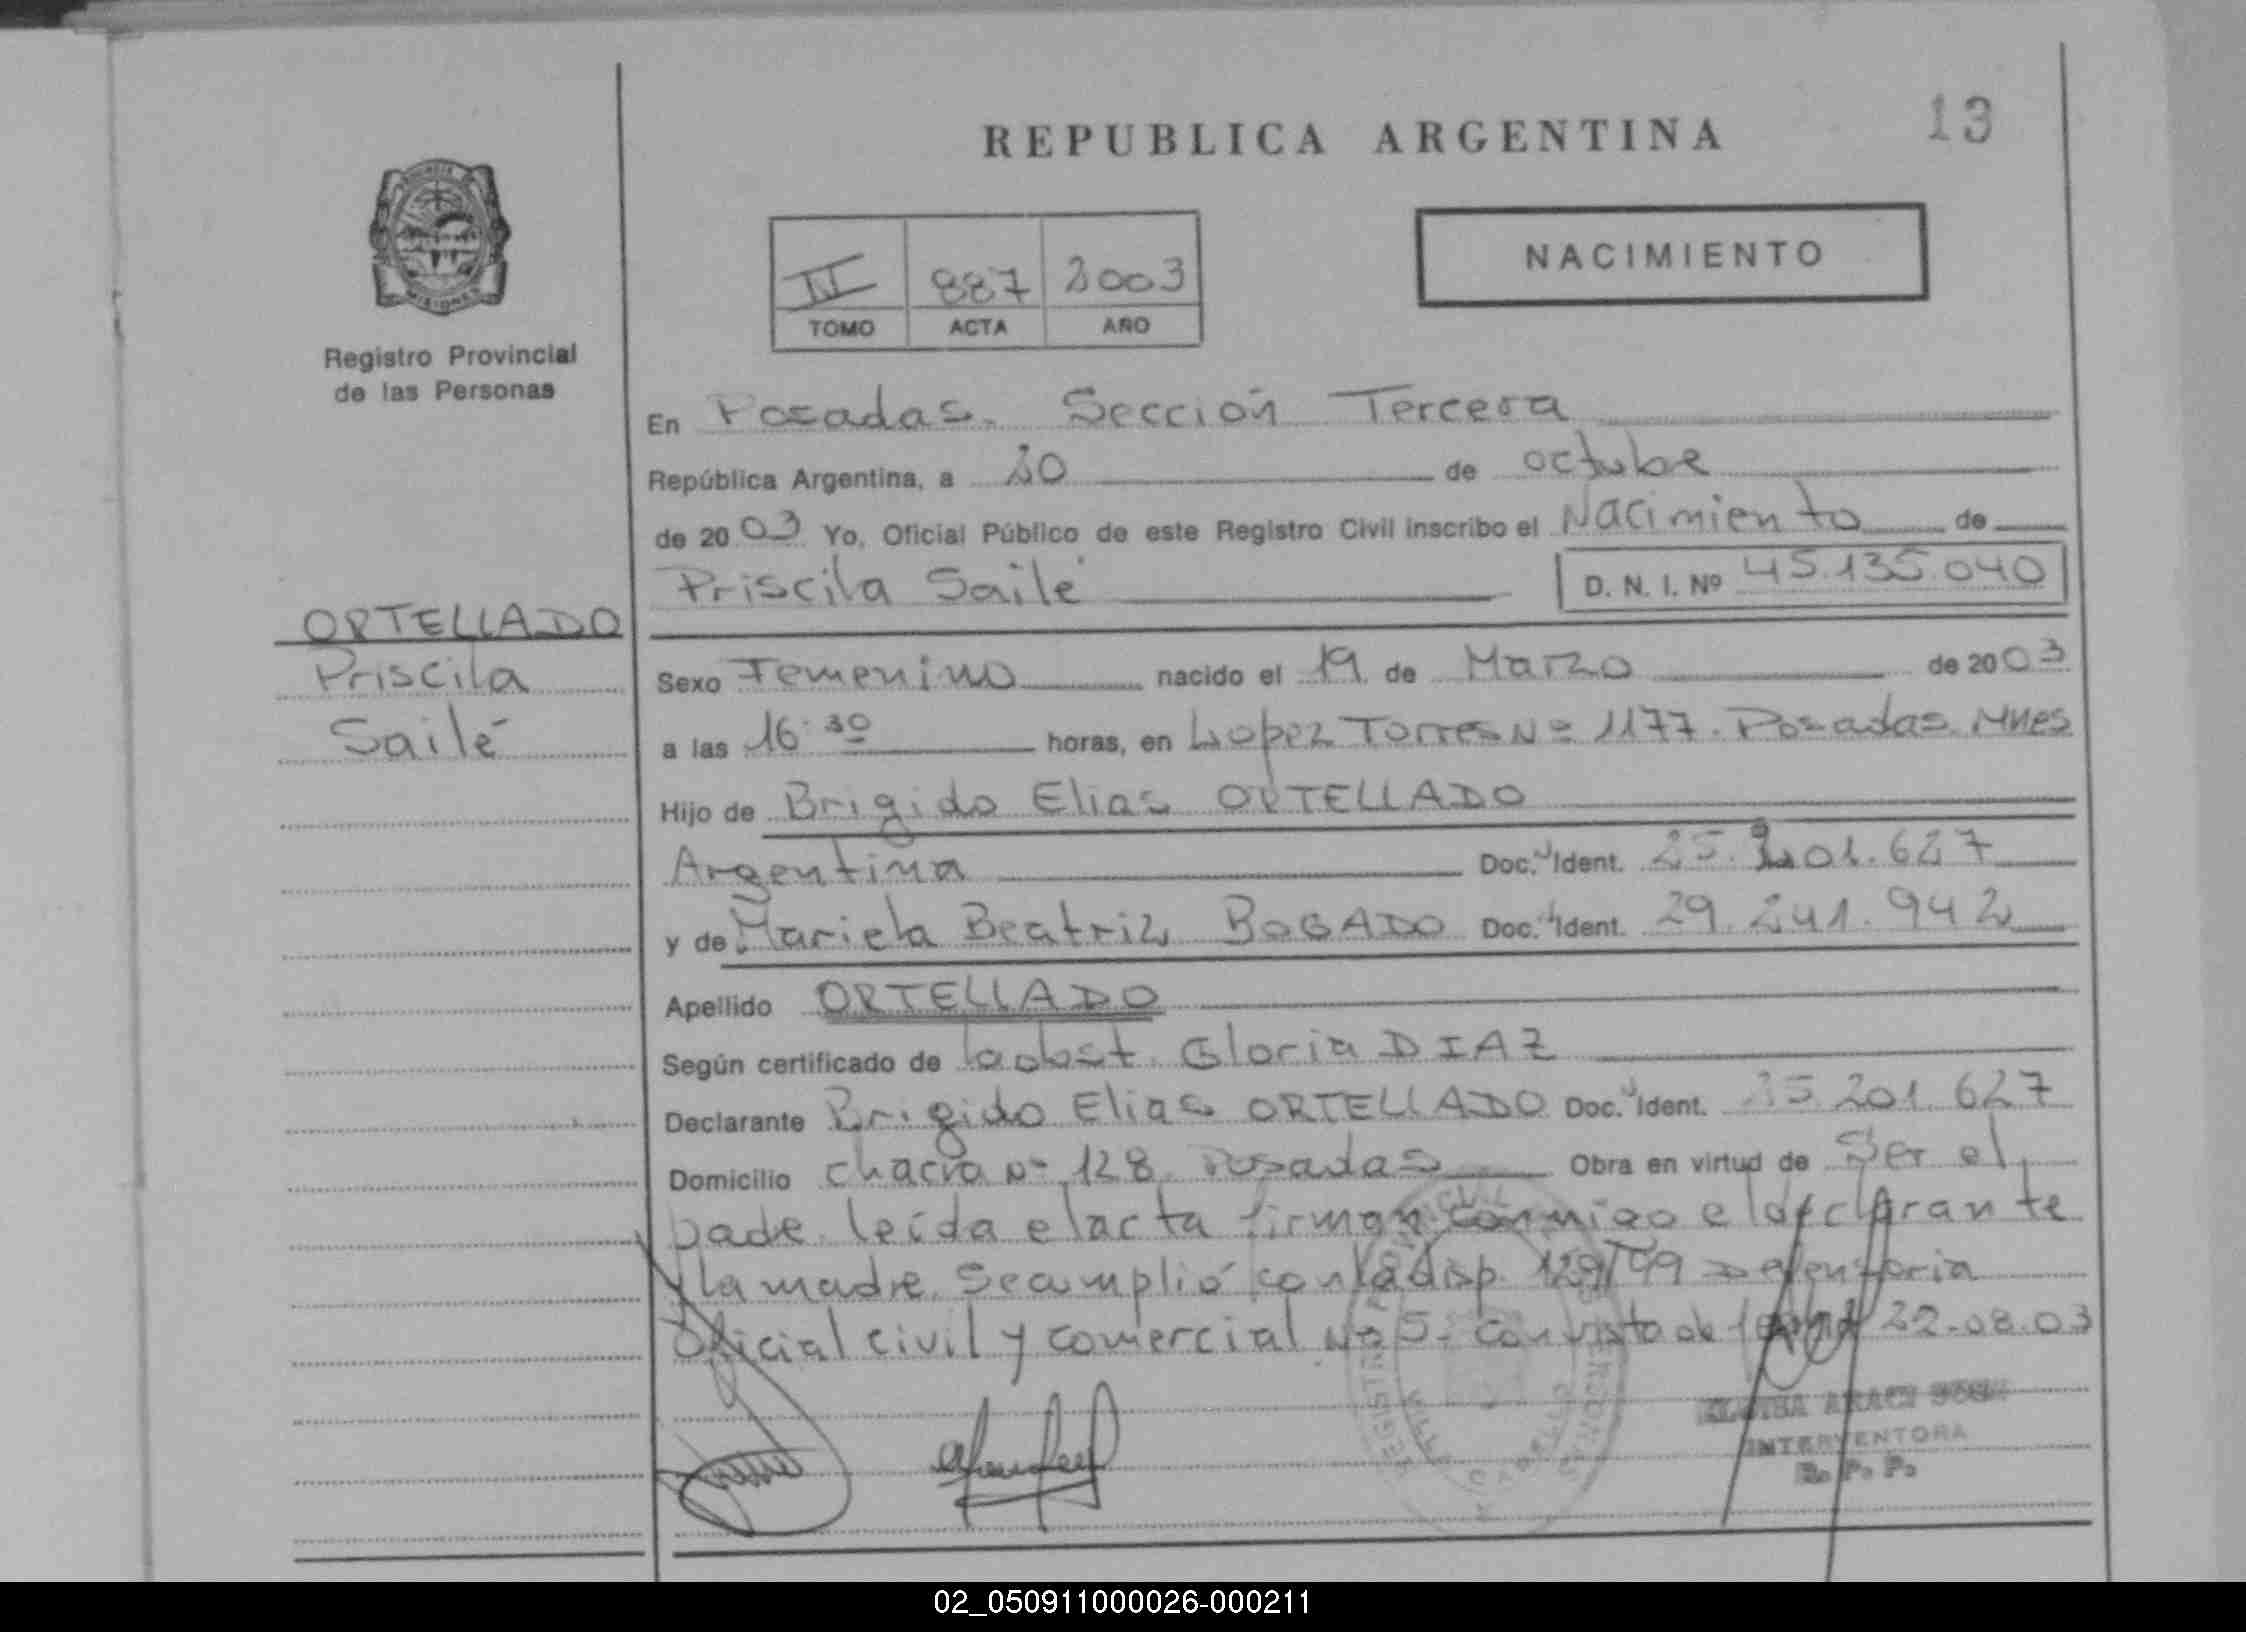 REPUBLICA ARGENTINA
13
MISIONES
Registro Provincial
de las Personas
II 887 2003
TOMO ACTA AÑO
NACIMIENTO
En Posadas. Sección Tercera
República Argentina, a 20 de octubre
de 2003 Yo, Oficial Público de este Registro Civil inscribo el Nacimiento de
Priscila Sailé D. N. I. Nº 45.135.040
ORTELLADO
Priscila
Sailé
Sexo Femenino nacido el 19 de Marzo de 2003
a las 16:30 horas, en Lopez Torres Nº 1177. Posadas. Mnes
Hijo de Brigido Elias ORTELLADO
Argentina Doc. Ident. 25.201.627
y de Mariela Beatriz BOGADO Doc. Ident. 29.241.942
Apellido ORTELLADO
Según certificado de la obst. Gloria DIAZ
Declarante Brigido Elias ORTELLADO Doc. Ident. 25.201.627
Domicilio chacra Nº 128 Posadas Obra en virtud de Ser el
pade. leída el acta firman conmigo el declarante
y la madre. Se cumplió con la disp. 129/99 Defensoria
Oficial civil y comercial Nº 5. Con visto de 22-08-03
INTERVENTORA
R. P. P.
02_050911000026-000211